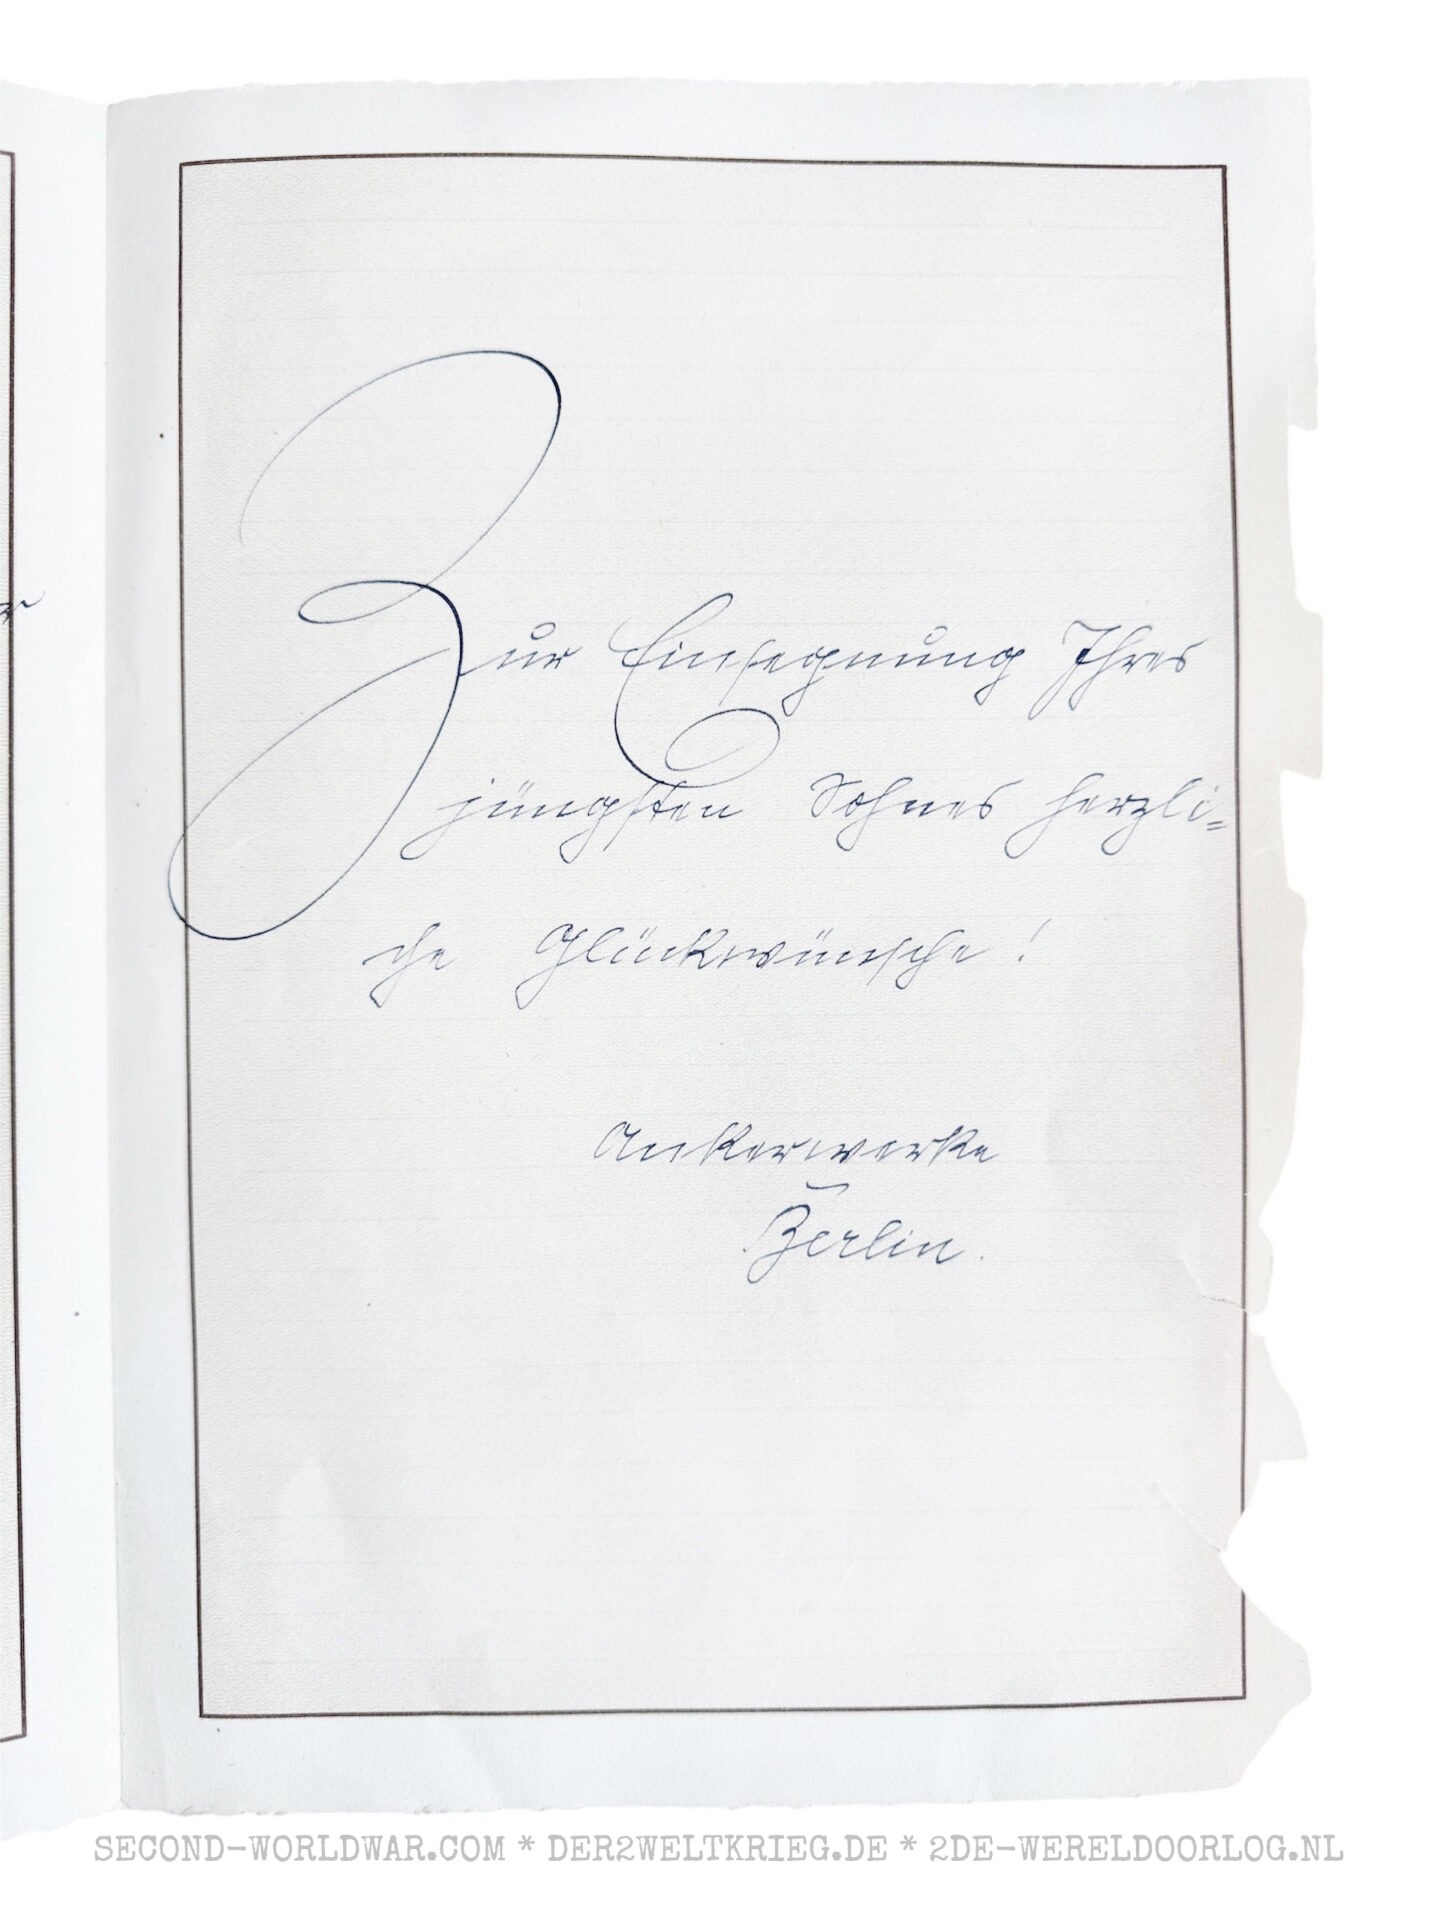 Zur Einsegnung Ihres
jüngsten Sohnes herzli=
che Glückwünsche!
Ankerwerke
Berlin.
SECOND-WORLDWAR.COM * DER2WELTKRIEG.DE * 2DE-WERELDOORLOG.NL